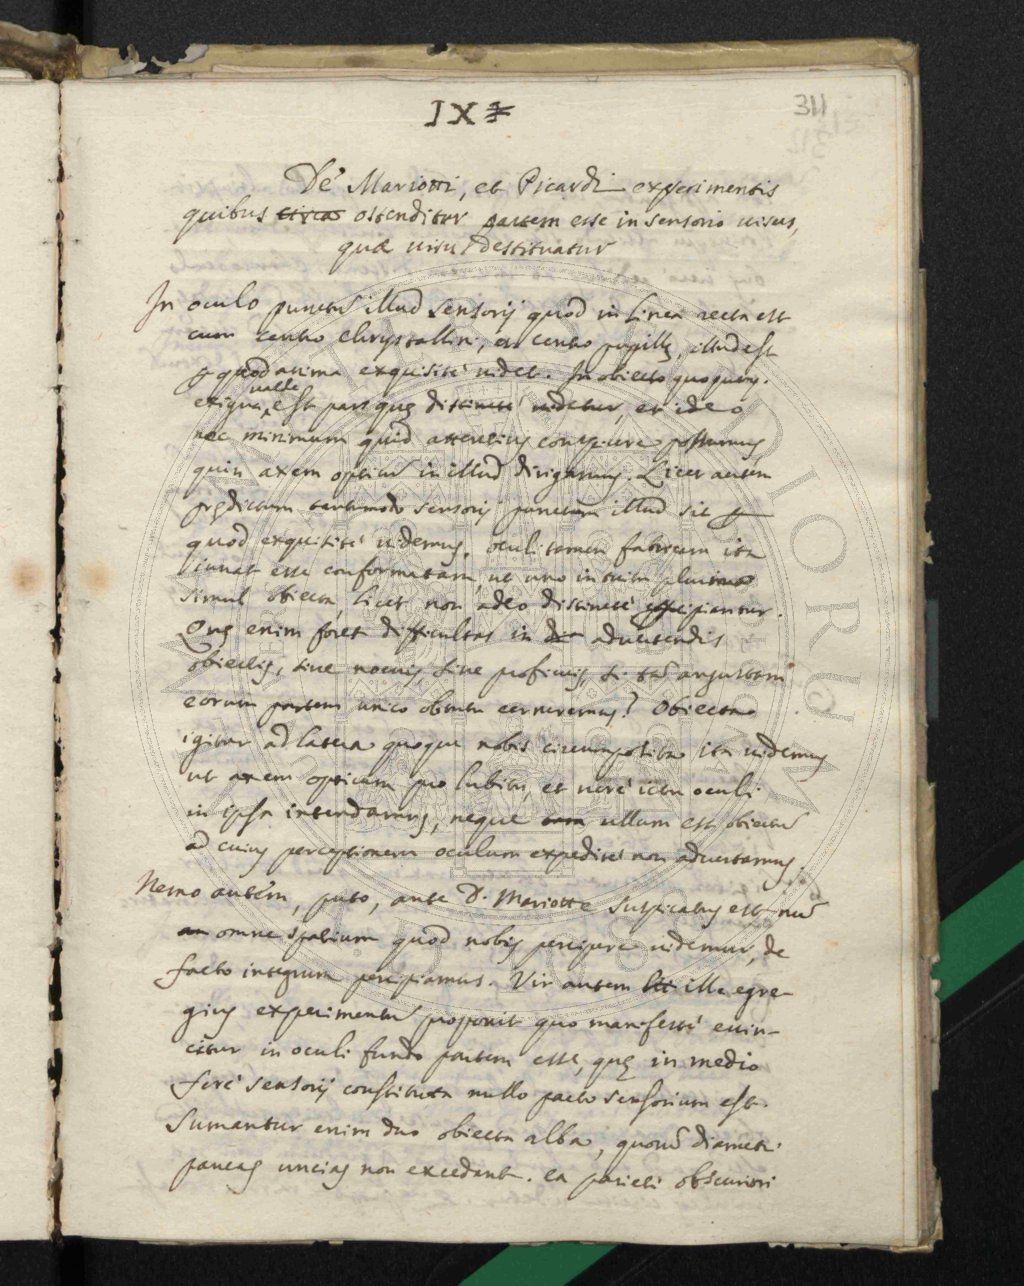 IX
311
De Mariotti, et Picardi experimentis
quibus circa ostenditur partem esse in sensorio uisus,
quæ uisu destituatur
In oculo punctũ illud sensorij quod in linea recta est
cum centro Chrystallini, et centro pupillę, illud est
quod anima exquisitè uidet. In obiecto quoque
exigua ualde est pars quę distinctè uidetur, et ideo
nec minimum quid attentius conspicere possumus
quin axem opticũ in illud dirigamus. Licet autem
prędictum tantumodo sensorij punctum illud sit
quod exquisitè uidemus, oculi tamen fabricam ita
iuuat esse conformatam, ut uno intuitu plurima
simul obiecta, licet non adeo distinctè percipiantur.
Quę enim foret difficultas in aduertendis
obiectis, siue nocuis, siue proficuis, si tã angustam
eorum partem unico obtutu cerneremus? Obiecta
igitur ad latera quoque nobis circumposita ita uidemus
ut axem opticum pro lubitu, et uerè ictu oculi
in ipsa intendamus, neque ullum est obiectũ
ad cuius perceptionem oculum expeditè non aduertamus.
Nemo autem, puto, ante D. Mariotte suspicatus est nũ
an omne spatium quod nobis percipere uidemur, de
facto integrum percipiamus. Vir autem ille egre-
gius experimentũ proponit quo manifestè euin-
citur in oculi fundo partem esse, quę in medio
ferè sensorij constituta nullo pacto sensorium est.
Sumantur enim duo obiecta alba, quorũ diametri
paucas uncias non excedant. ea parieti obscuriori